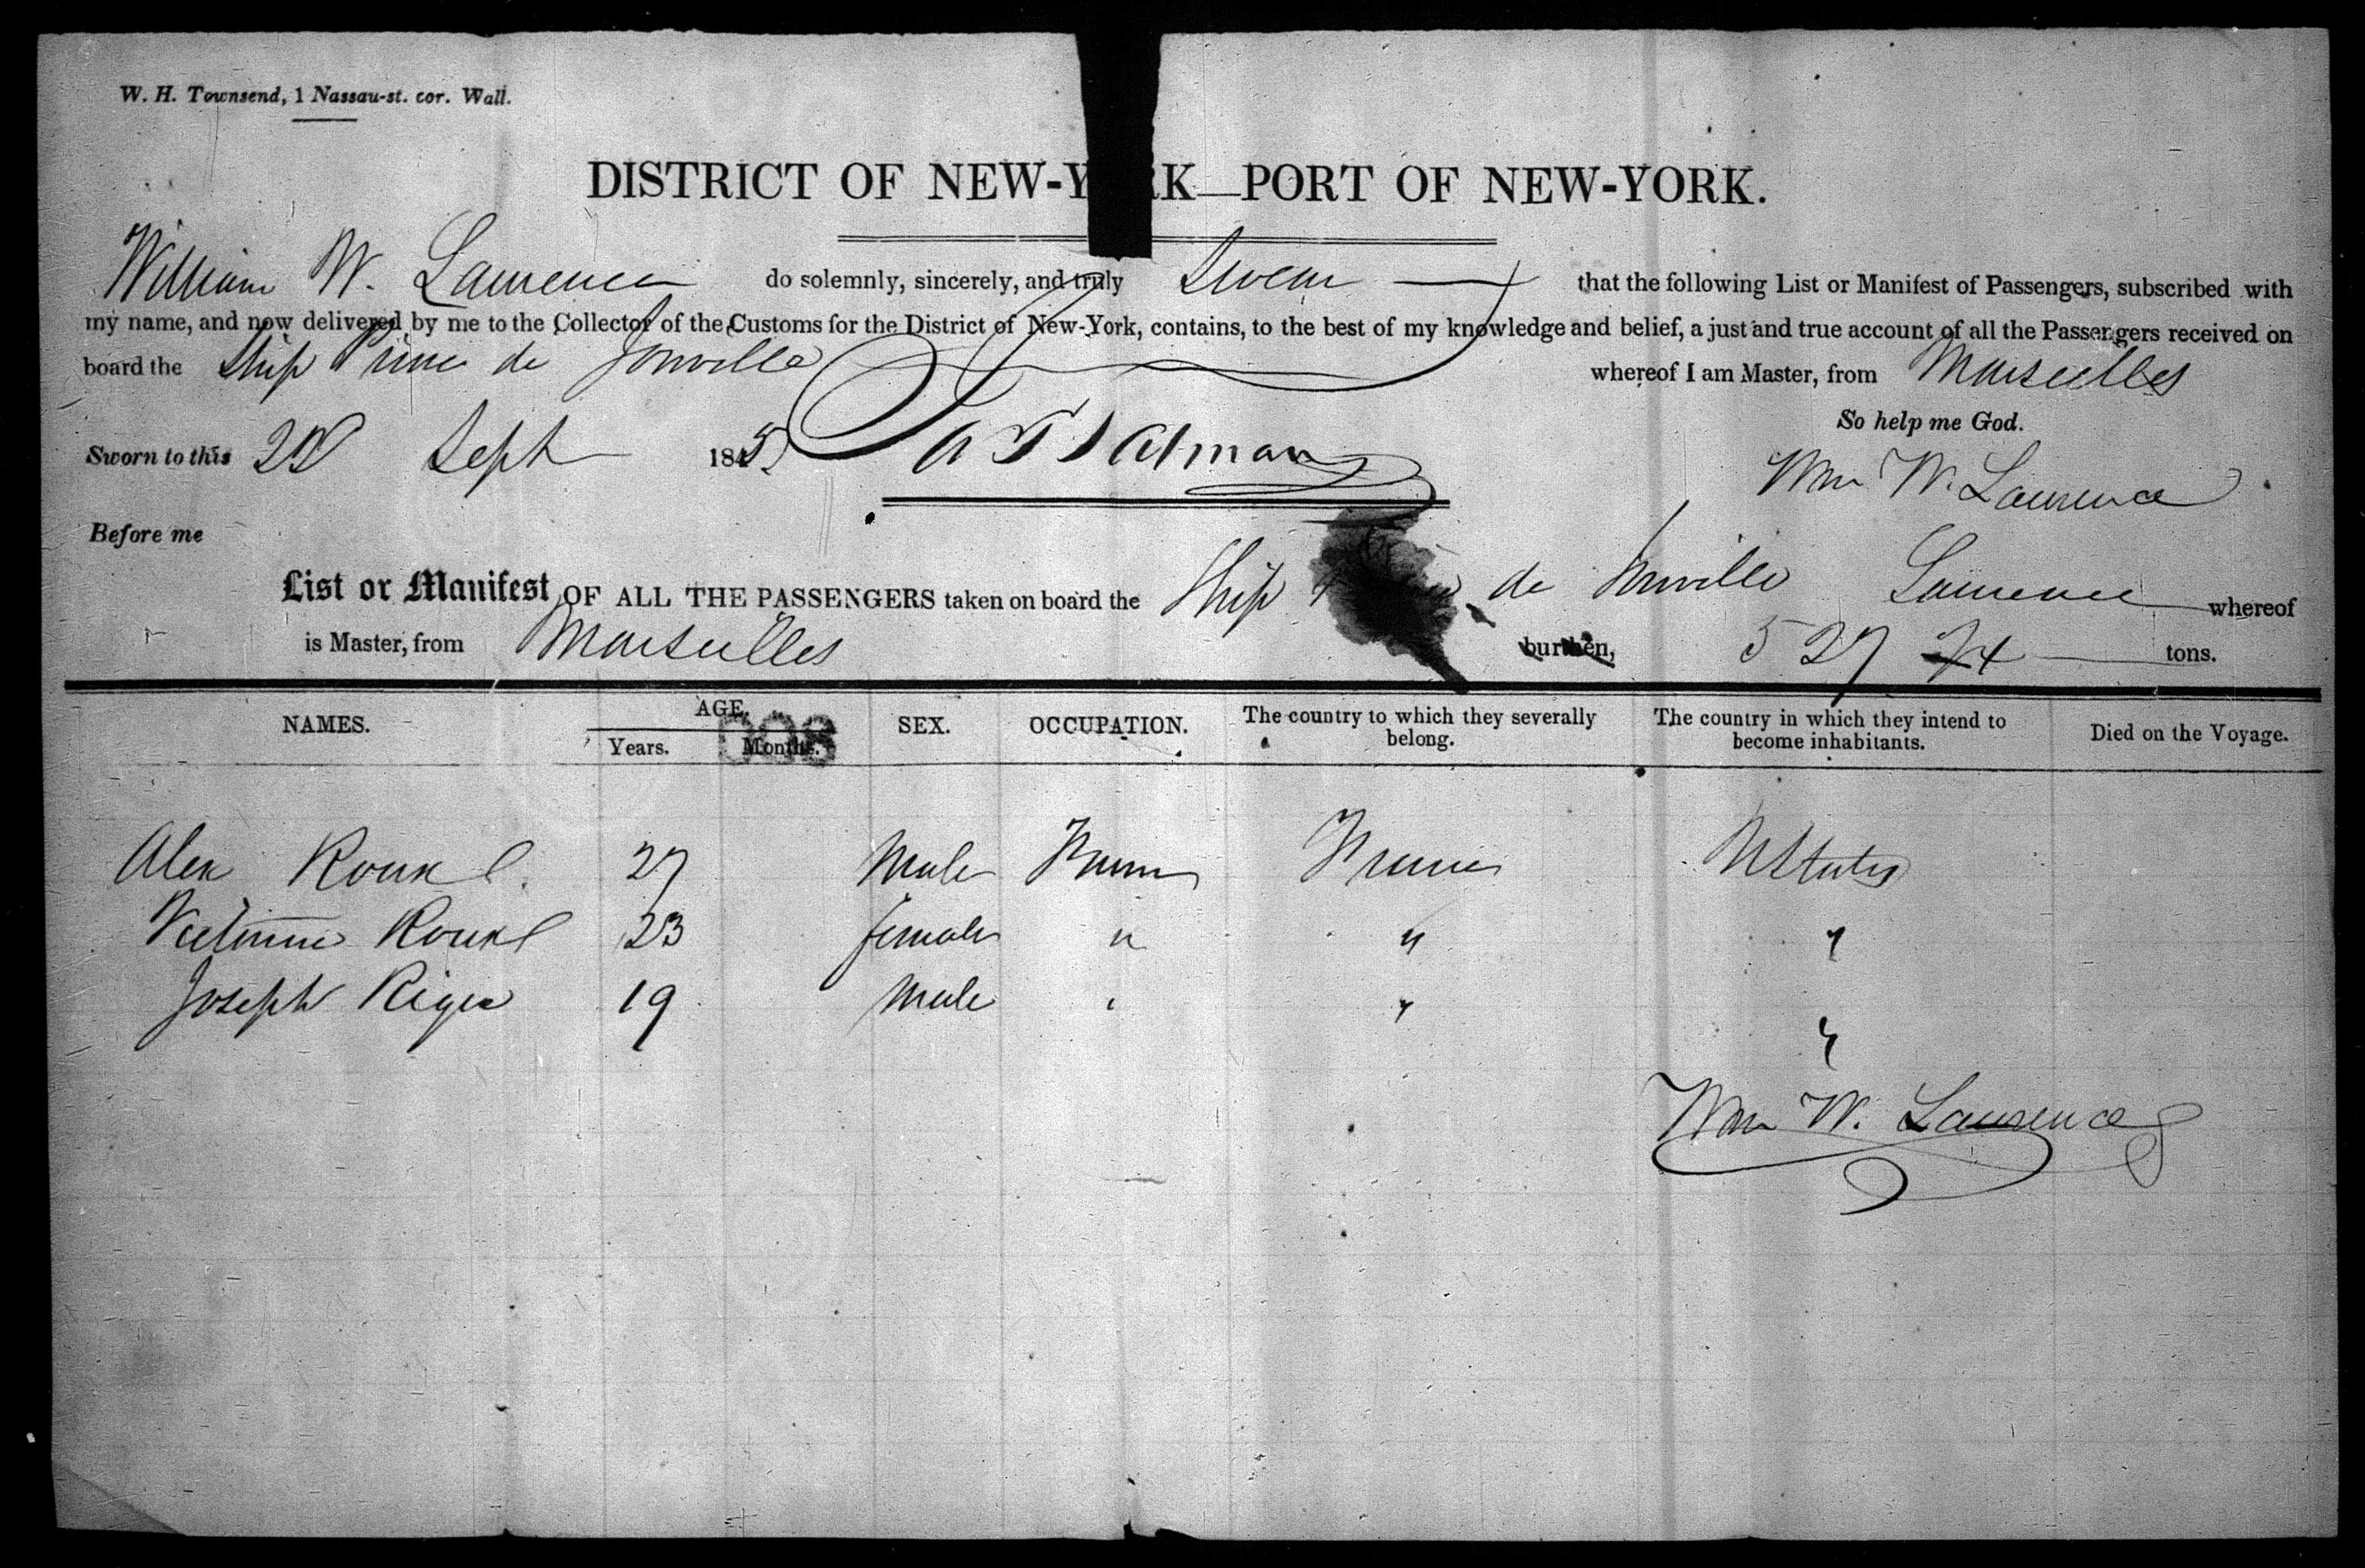 W. H. Townsend, 1 Nassau-st. cor. Wall.
DISTRICT OF NEW-Y RK—PORT OF NEW-YORK.
William W. Laurence do solemnly, sincerely, and truly Swear that the following List or Manifest of Passengers, subscribed with
my name, and now delivered by me to the Collector of the Customs for the District of New-York, contains, to the best of my knowledge and belief, a just and true account of all the Passengers received on
board the Ship Prince de Joinville whereof I am Master, from Marseilles
So help me God.
Sworn to this Sept 1845
Wm W. Laurence
Before me
List or Manifest OF ALL THE PASSENGERS taken on board the Ship de Joinville Laurence whereof
is Master, from Marseilles burthen, 527 tons.
NAMES. AGE. SEX. OCCUPATION. The country to which they severally belong. The country in which they intend to become inhabitants. Died on the Voyage.
Years. Months.
008
Alex 27 Male France U States
23 female " " "
Joseph 19 Male " " "
Wm W. Laurence